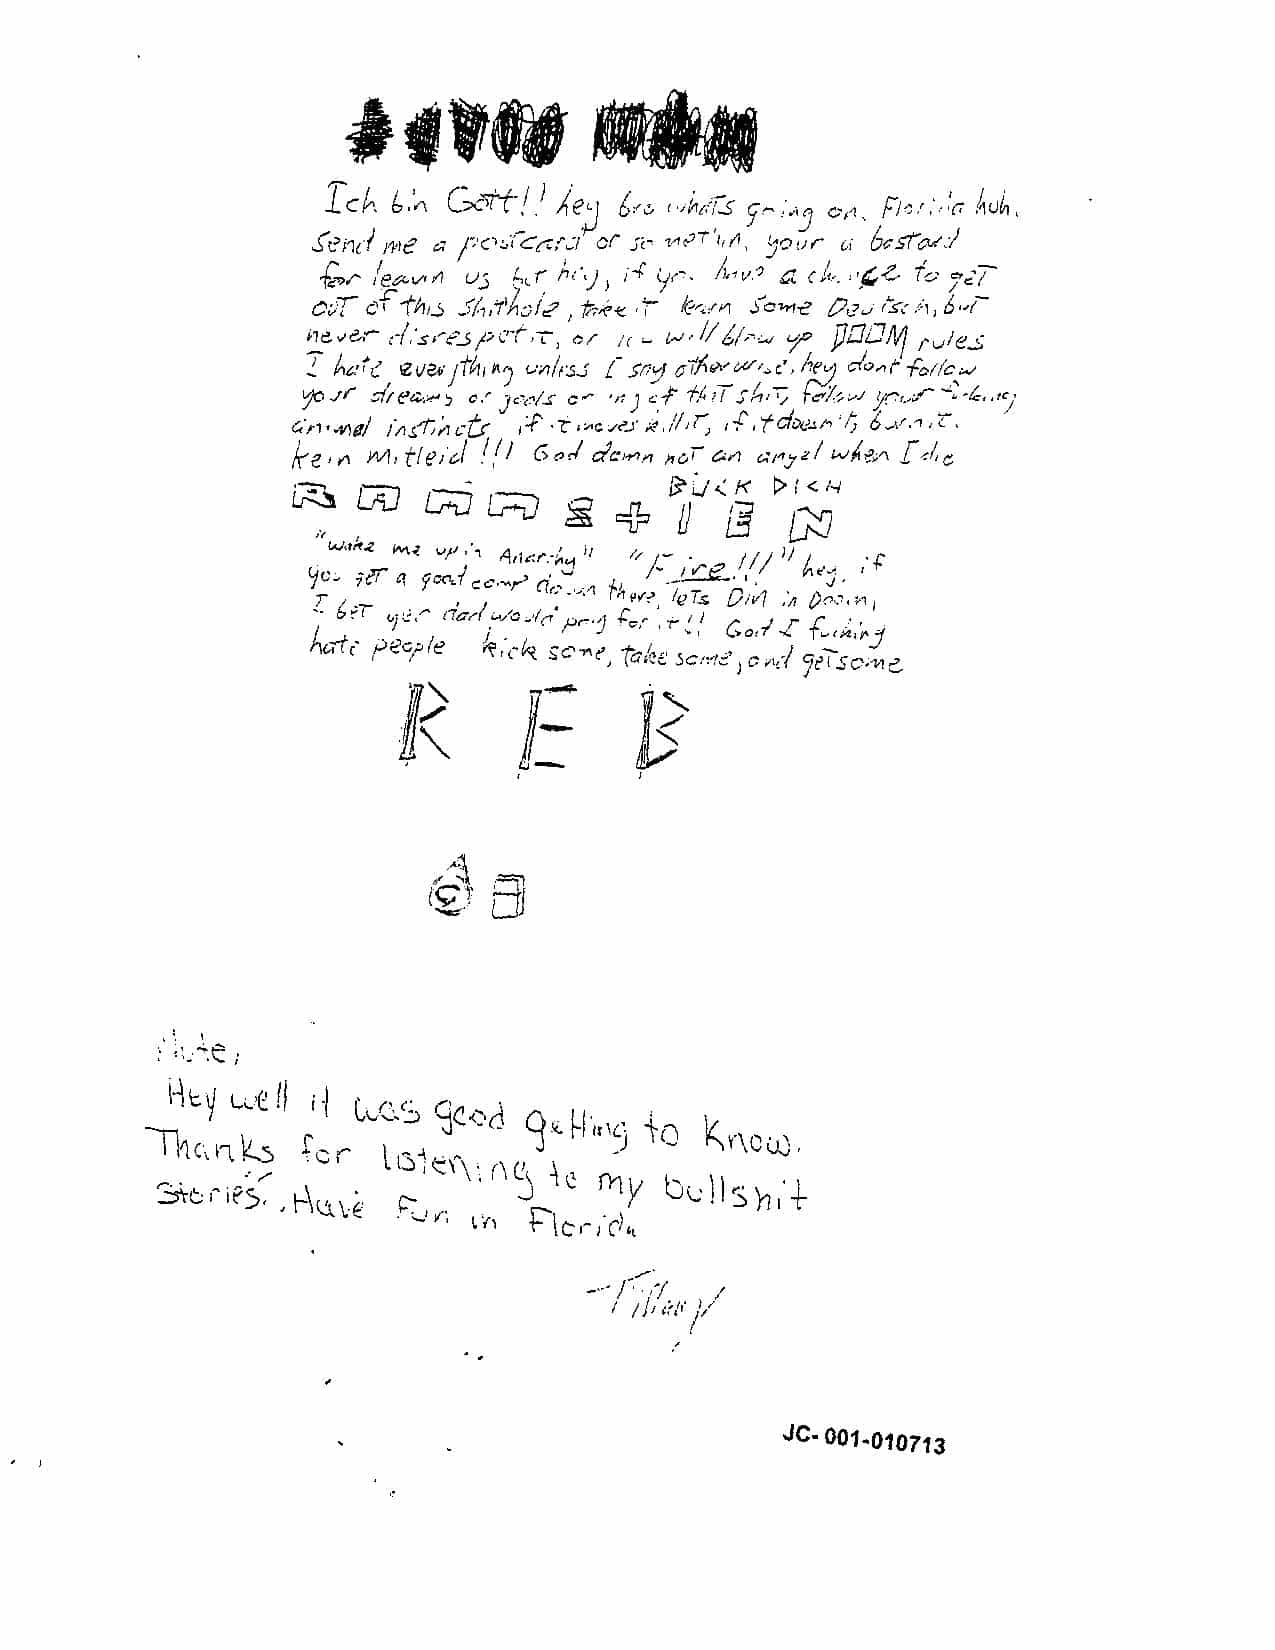 Ich bin Gott!! hey bro whats going on, Florida huh.
Send me a postcard or somethin, your a bastard
for leavin us but hey, if you have a chance to get
out of this shithole, take it learn some Deutsch, but
never disrespect it, or it will blow up DOOM rules
I hate everything unless I say otherwise, hey dont follow
your dreams or goals or any of that shit, follow your fucking
animal instincts, if it moves kill it, if it doesn't, burn it.
kein Mitleid!!! God damn not an angel when I die
BUCK DICH
RAMMSTEIN
"wake me up in Anarchy" "Fire!!!" hey, if
you get a good comp down there, lets D/M in Doom,
I bet your dad would pay for it!! God I fucking
hate people kick some, take some, and get some
REB
Nate,
Hey well it was good getting to know.
Thanks for listening to my bullshit
stories. Have fun in Florida
-Tiffany
JC-001-010713